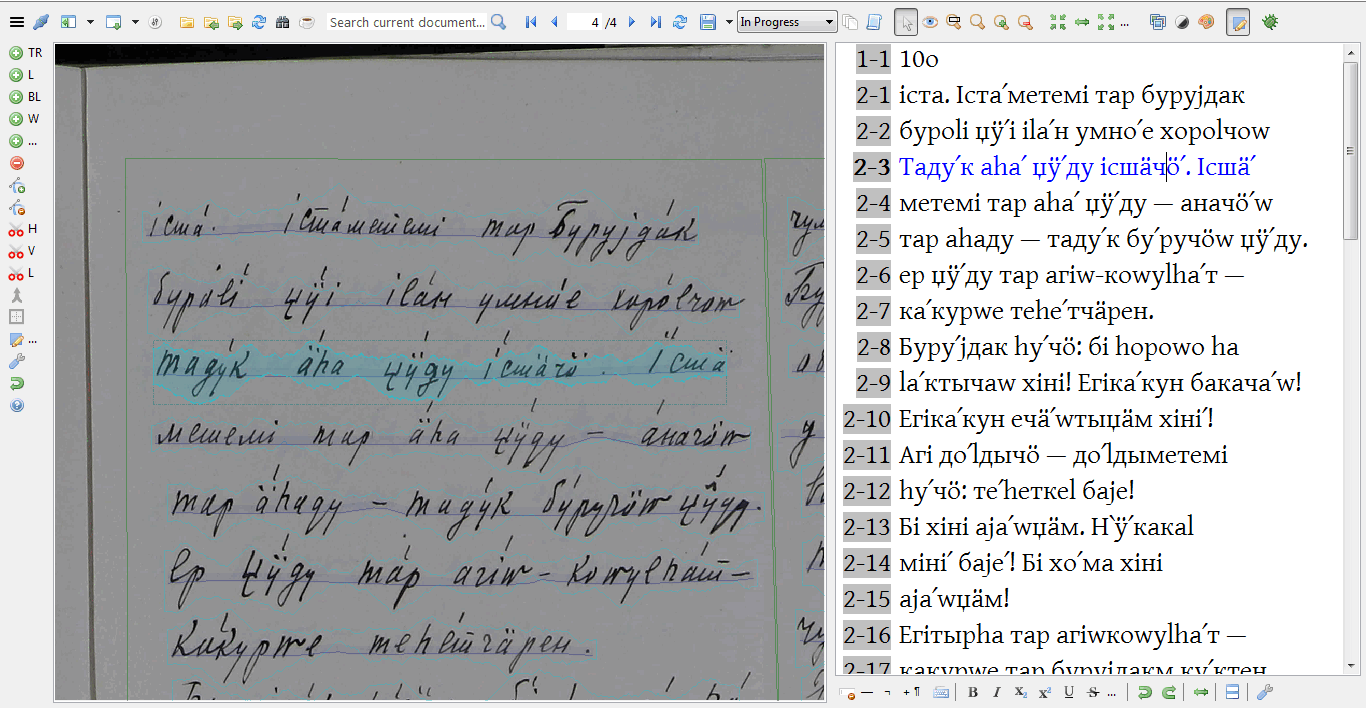 Search current document...
4 /4
In Progress
TR
L
BL
W
...
H
V
L
...
іста́. Іста́метемі тар Буруjда́к
буро́lі џӱ́і іlа́н умно́е хоро́lчоw
таду́к ӓ́hа џӱ́ду і́сшӓчӧ. І́сшӓ
метемі тар ӓ́hа џӱ́ду — а́начӧw
тар ӓ́hаду — таду́к бу́ручӧw џӱ́ду.
ер џӱ́ду та́р агі́w-коwуlhа́т —
Ка́курwе теhе́тчӓрен.
1-1 10о
2-1 іста. Іста´метемі тар буруjдак
2-2 буроlі џӱ´і іlа´н умно´е хороlчоw
2-3 Таду´к аhа´ џӱ´ду ісшӓчӧ´. Ісшӓ´
2-4 метемі тар аhа´ џӱ´ду — аначӧ´w
2-5 тар аhаду — таду´к бу´ручӧw џӱ´ду.
2-6 ер џӱ´ду тар агіw-коwуlhа´т —
2-7 ка´курwе теhе´тчӓрен.
2-8 Буру´jдак hу´чӧ: бі hороwо hа
2-9 lа´ктычаw хіні! Егіка´кун бакача´w!
2-10 Егіка´кун ечӓ´wтыџӓм хіні´!
2-11 Агі до´lдычӧ — до´lдыметемі
2-12 hу´чӧ: те´hеткеl баjе!
2-13 Бі хіні аjа´wџӓм. Н`ӱ´какаl
2-14 міні´ баjе´! Бі хо´ма хіні
2-15 аjа´wџӓм!
2-16 Егітырhа тар агіwкоwуlhа´т —
2-17 какурwе тар буруjдакм ку´ктен
B I X₂ X² U S ...